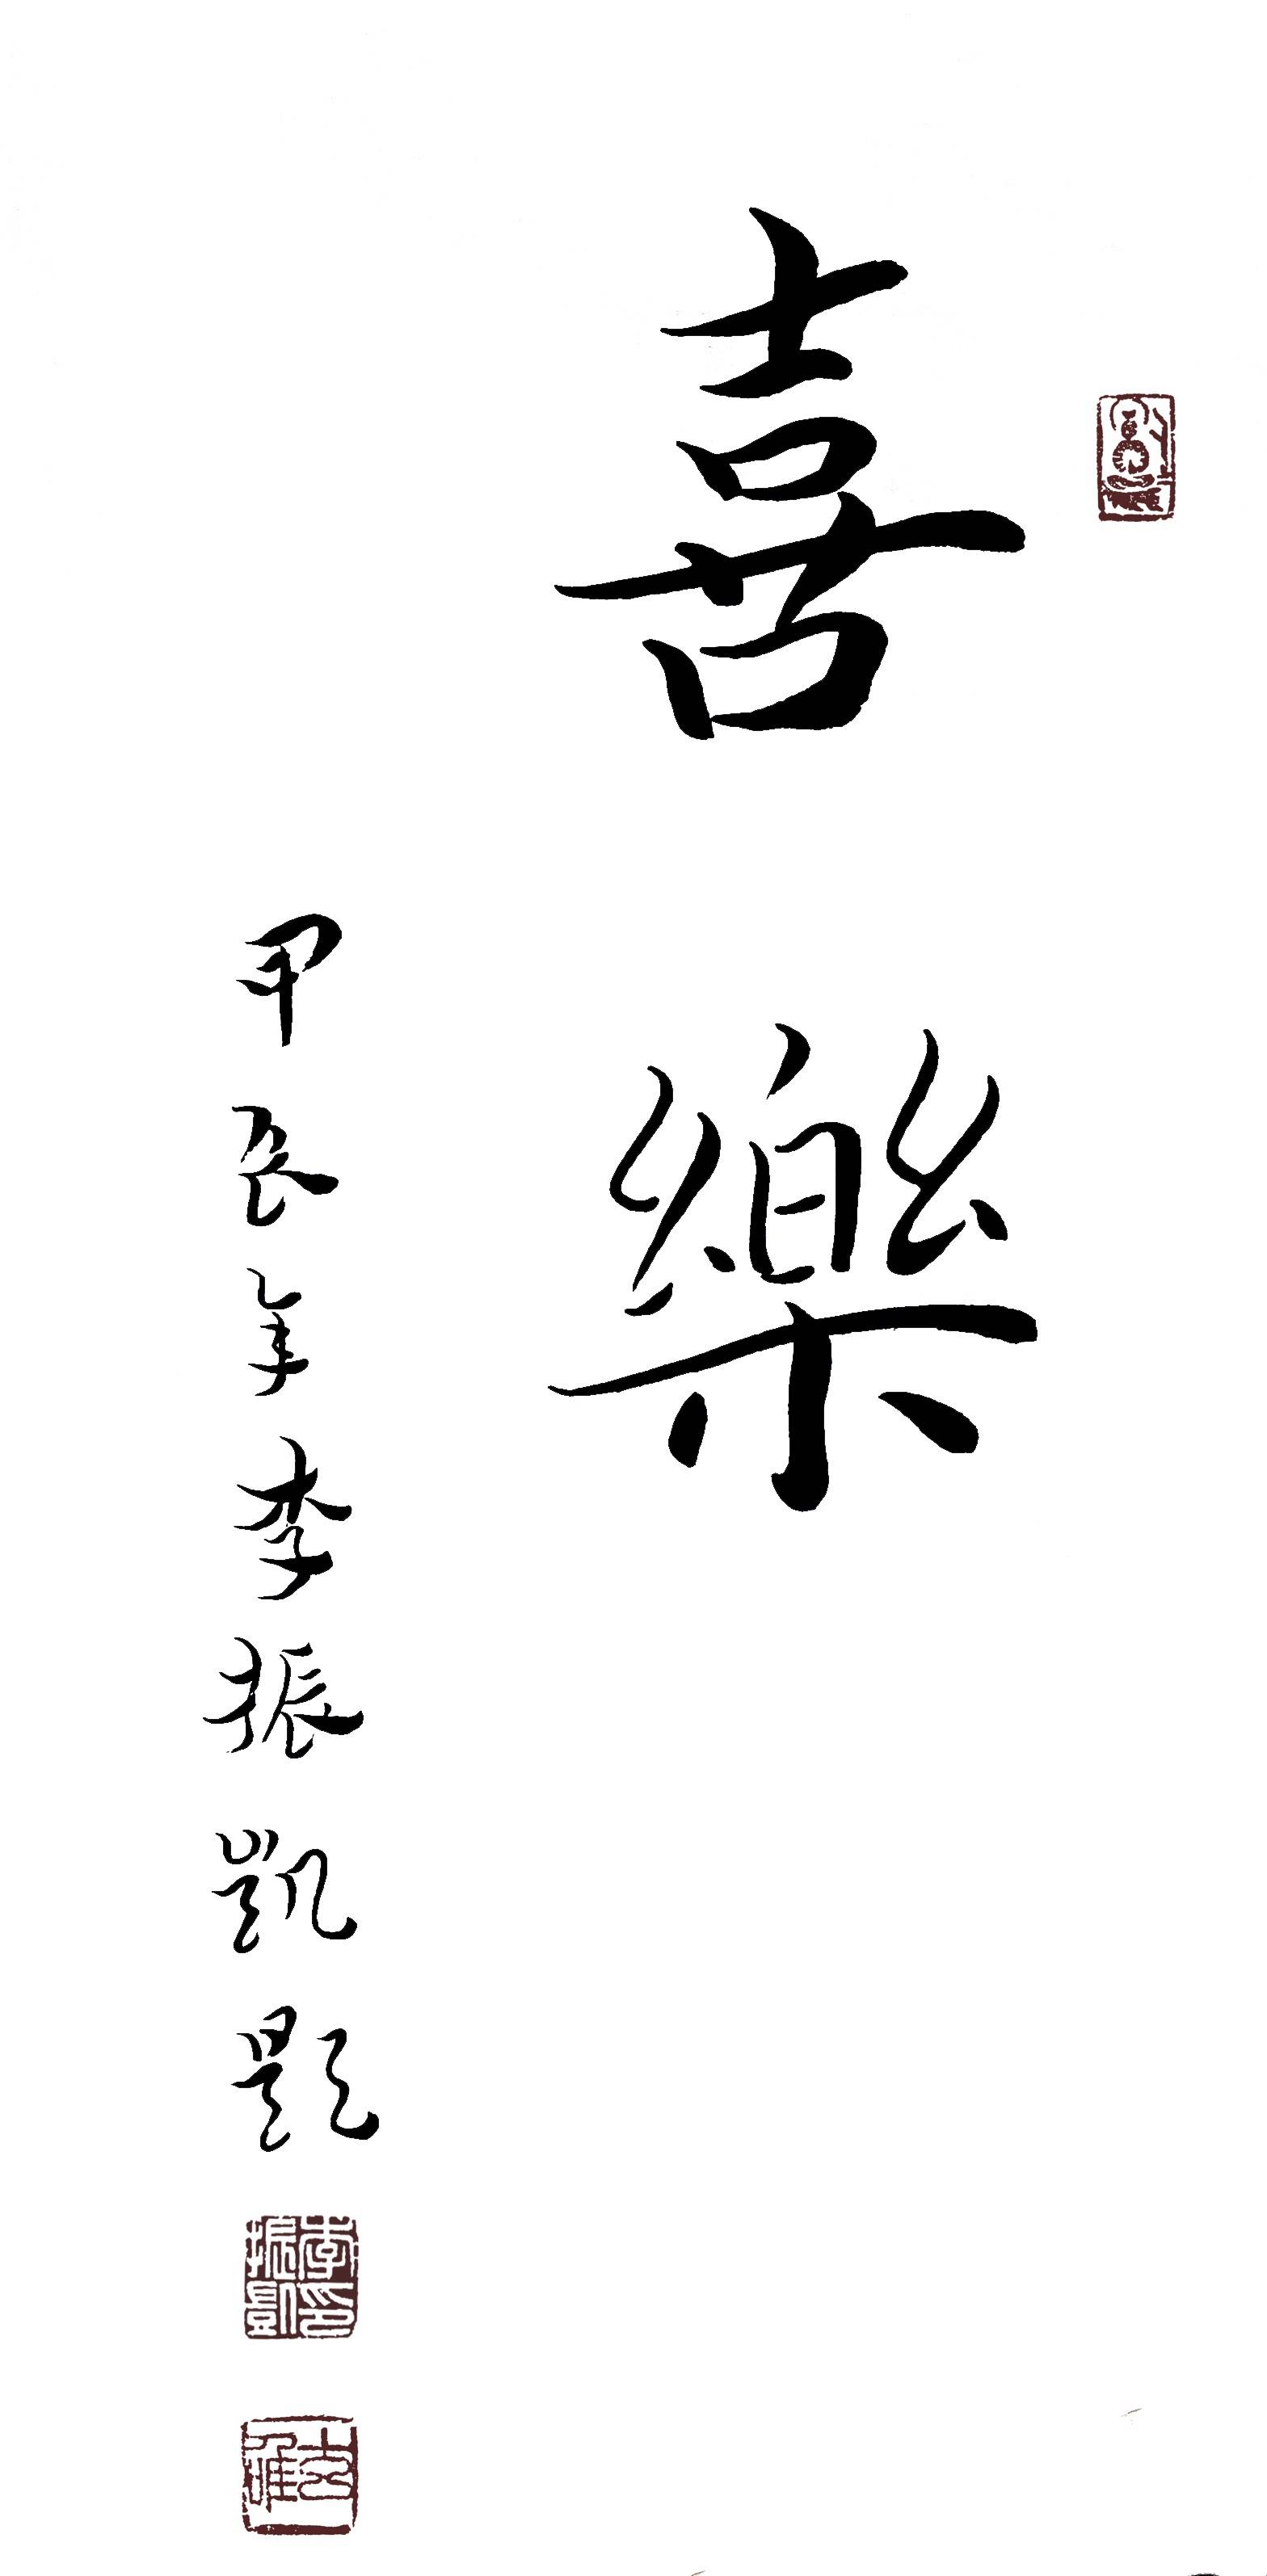 喜樂
甲辰年李振凱題
李振凱印